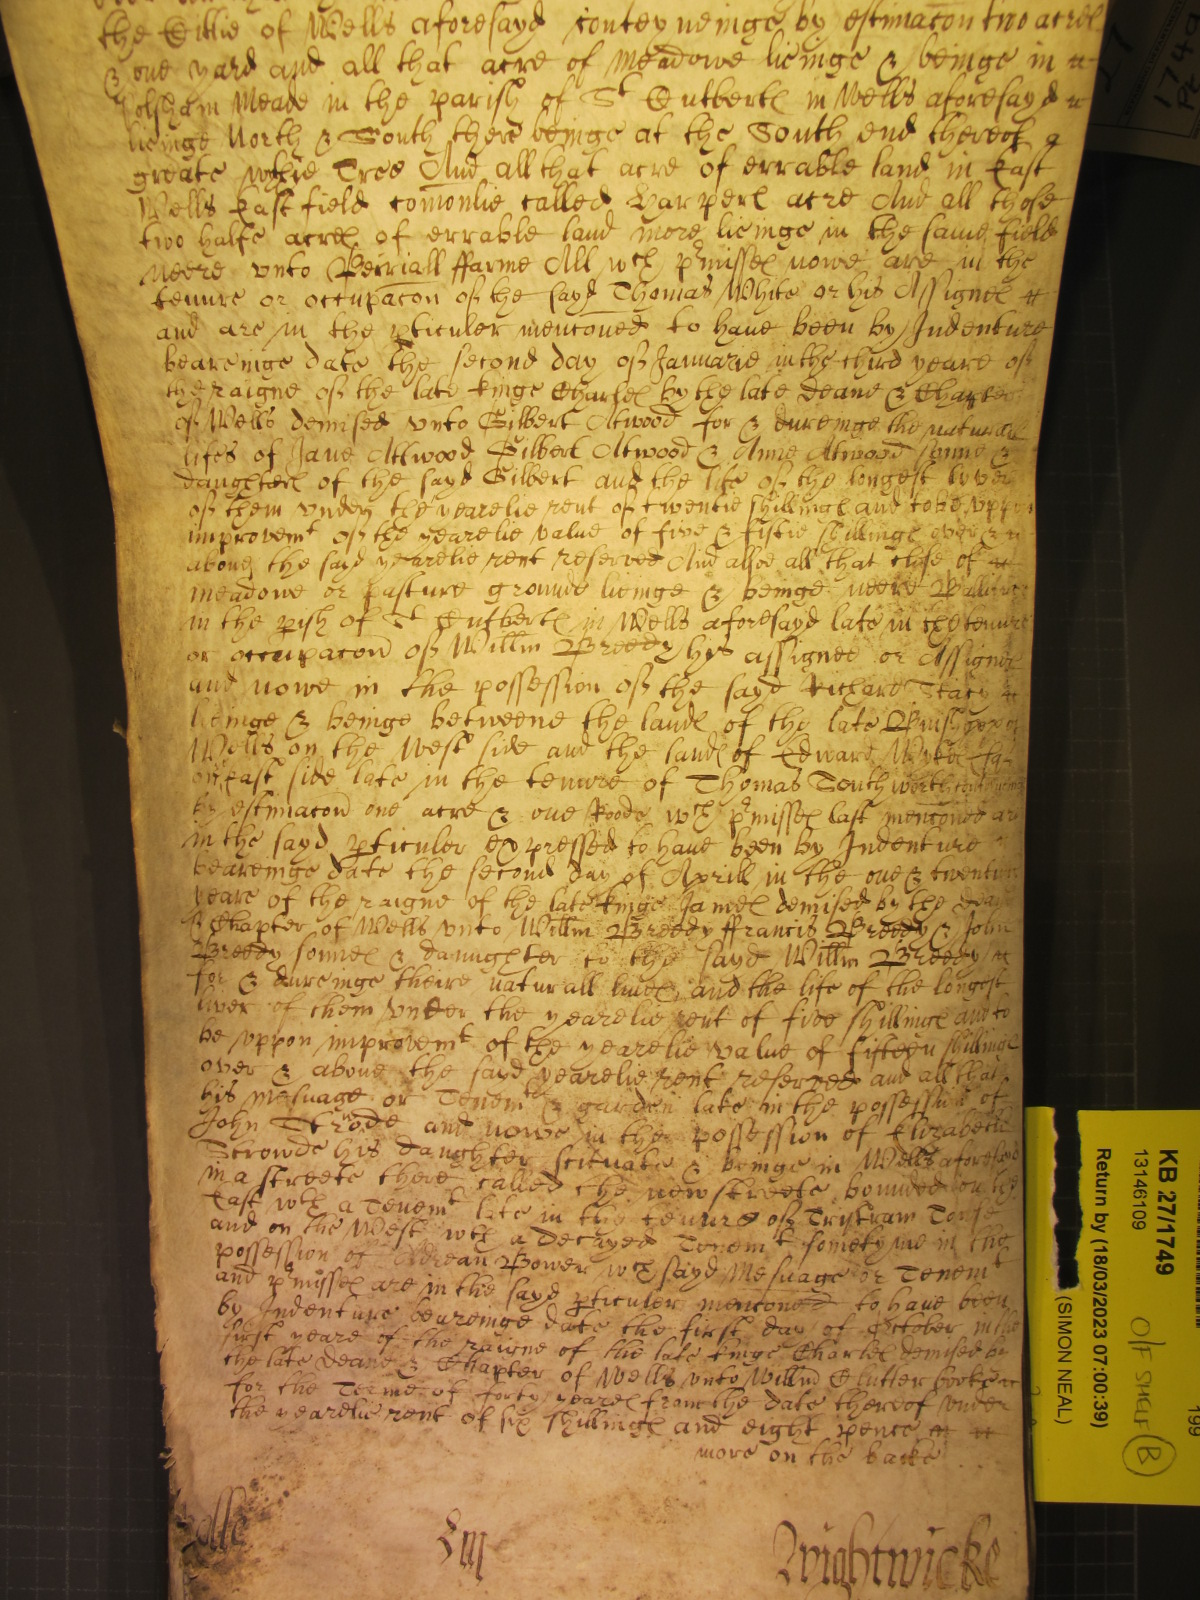 the Cittie of Wells aforesayd conteyneinge by estimacon two acres
& one yard and all that acre of meadowe lieinge & beinge in
Polsham Meade in the parish of St Cutberts in Wells aforesayd
lieinge North & South there beinge at the South end thereof a
greate Tree And all that acre of errable land in East
Wells East field comonlie called Harpers acre And all those
two halfe acres of errable land more lieinge in the same field
neere vnto ffarme All wch pmisses nowe are in the
tenure or occupacon of the sayd Thomas White or his Assignes
and are in the pticuler menconed to have been by Indenture
beareinge date the second day of Januarie in the third yeare of
the raigne of the late kinge Charles by the late Deane & Chapter
of Wells demised vnto Gilbert Atwood for & dureinge the naturall
lifes of Jane Attwood Gilbert Atwood & Anne Atwood sonne &
daughters of the sayd Gilbert and the life of the longest liver
of them vnder the yearelie rent of twentie shillings and to be vppon
improvemt of the yearelie value of five & fiftie shillings over &
above the said yearelie rent reserved And alsoe all that close of
meadowe or pasture grounde lieinge & beinge neere
in the pish of St Cutberts in Wells aforesayd late in the tenure
or occupacon of Willm Breedy his assignee or Assignes
and nowe in the possession of the sayd Richard Stacy
lieinge & beinge betweene the lands of the late Bushopp of
Wells on the West side and the lands of Edward
on East side late in the tenure of Thomas Southworth
by estimacon one acre & one Roode wch pmisses last menconed are
in the sayd pticuler expressed to have been by Indenture
beareinge date the second day of Aprill in the one & twentith
yeare of the raigne of the late kinge James demised by the Deane
& Chapter of Wells vnto Willm Breedy ffrancis Breedy & John
Breedy sonnes & daughter to the sayd Willm Breedy
for & dureinge theire naturall lives and the life of the longest
liver of them vnder the yearelie rent of five shillings and to
be vppon improvemt of the yearelie value of fifteen shillings
over & above the sayd yearelie rent reserved and all that
his mesuage or Tenemt & garden late in the possession of
John Strode and nowe in the possession of Elizabeth
Strowde his daughter scituate & beinge in Wells aforesayd
in a streete there called the new streete bounded on the
East wth a Tenemt late in the tenure of Tristram
and on the West wth a decayed Tenemt sometyme in the
possession of Adrean Bower wch sayd Mesuage or Tenemt
and pmisses are in the sayd pticuler menconed to have been
by Indenture beareinge date the first day of October in the
first yeare of the raigne of the late kinge Charles demised by
the late Deane & Chapter of Wells vnto Willm
for the Terme of forty yeares from the date thereof vnder
the yearelie rent of six shillings and eight pence
more on the backe
Rolle
Liii
Wightwicke
KB 27/1749
13146109
Return by (18/03/2023 07:00:39)
(SIMON NEAL)
O/F SHELF B
199
1749